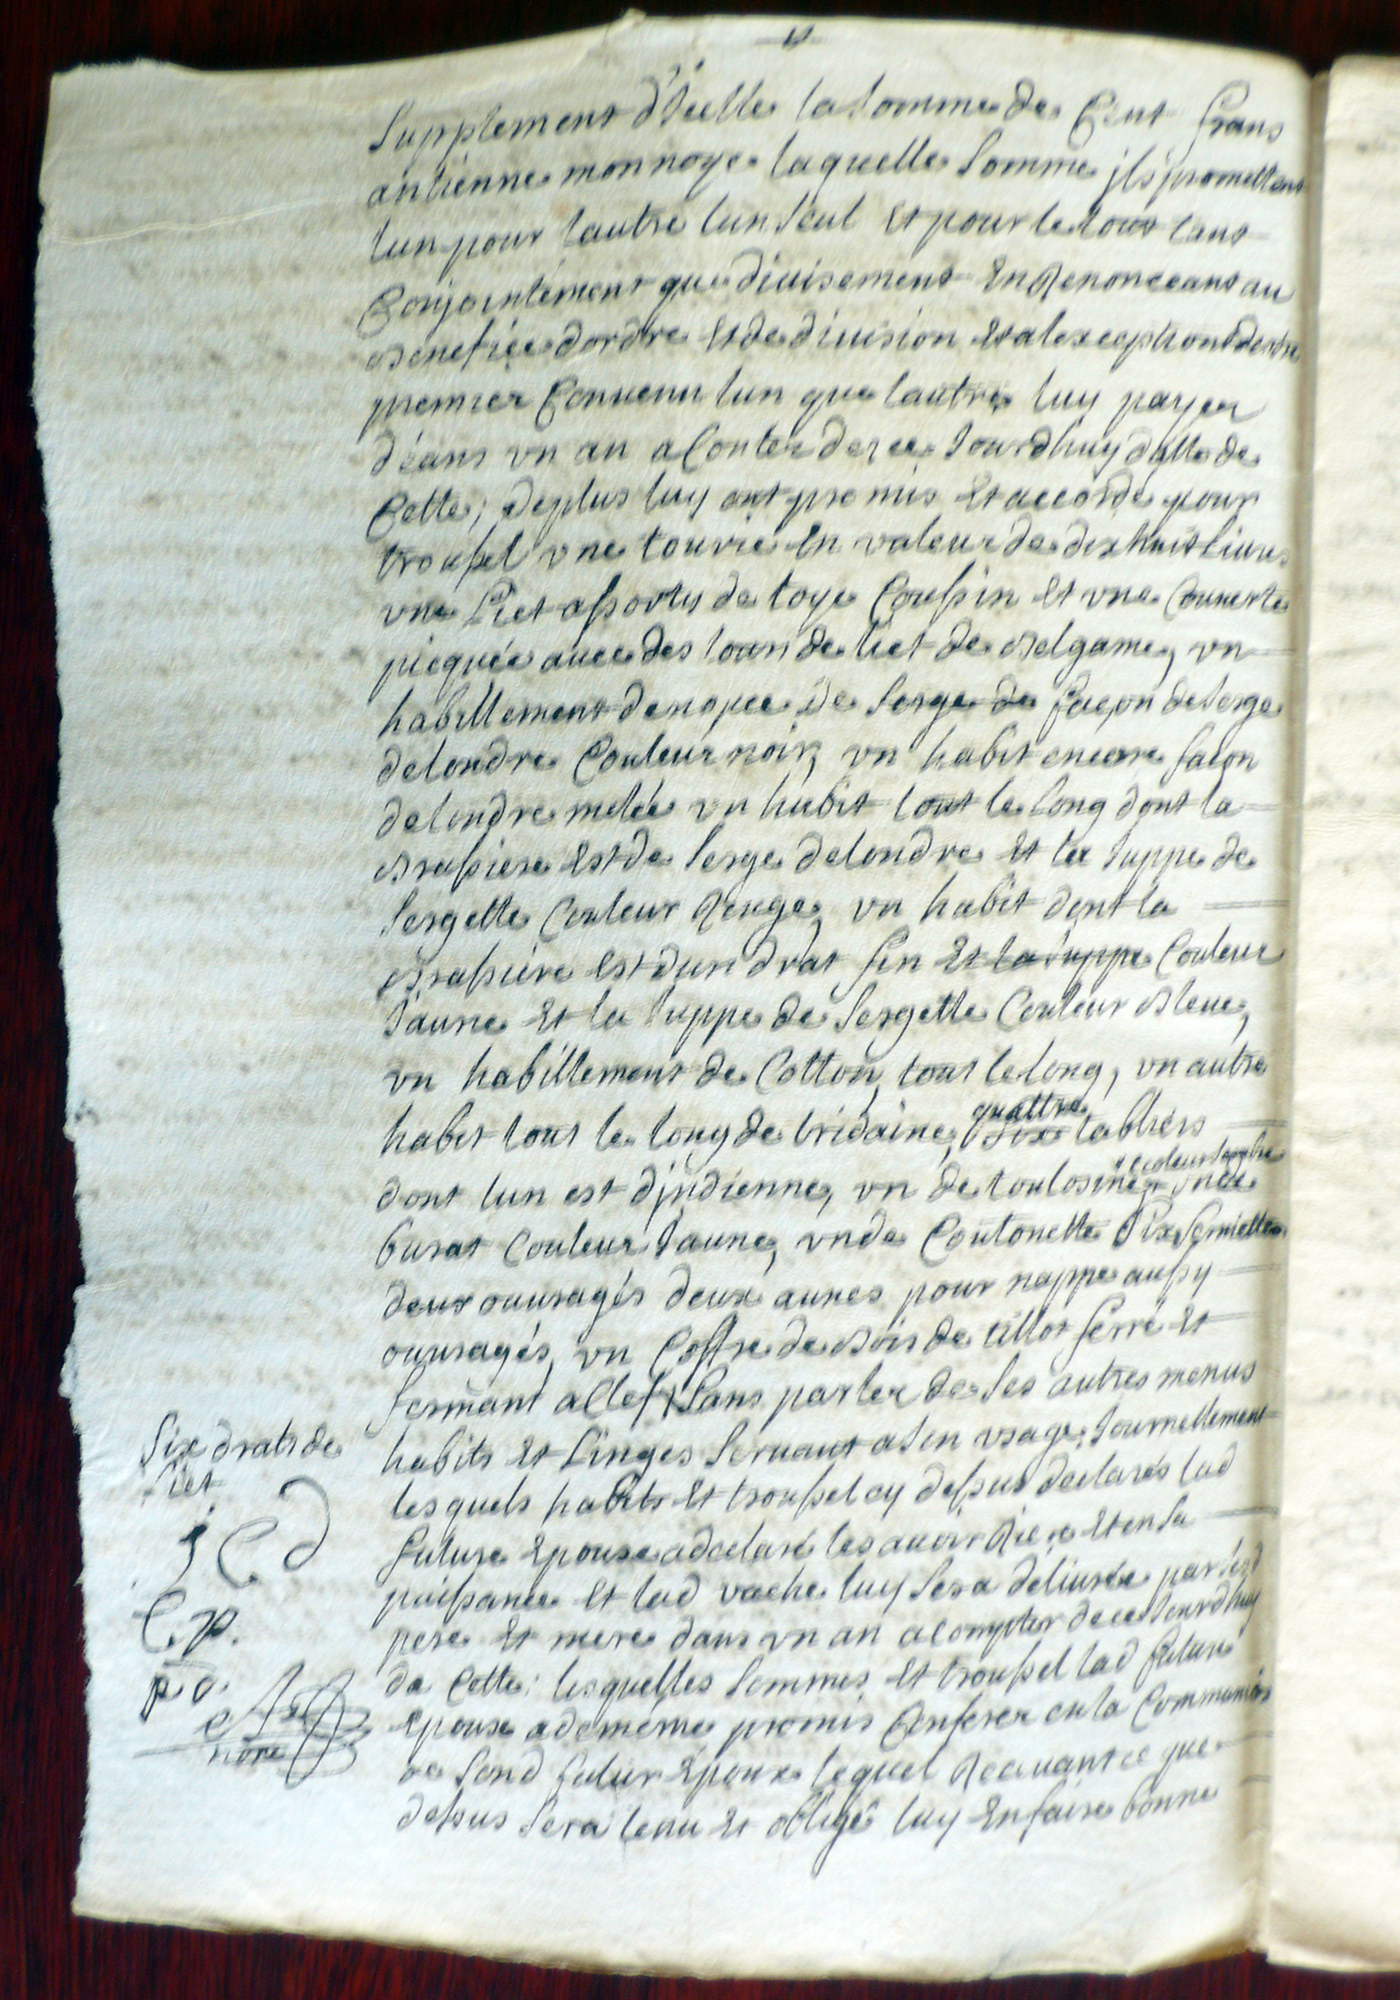 Supplement d'Icelle la somme de Cent frans
antienne monnoye laquelle somme jls promettent
lun pour lautre lun seul et pour le tout tant
Conjointement que diuisement en Renonceant au
benefice dordre et de diuision et a lexception destre
premier Conuenu lun que lautre luy payer
déans vn an a Conter dezce Jourdhuy datte de
Cette, deplus luy ont promis et accordé pour
troussel vne tourie en valeur de dix huit liures
vne Liet assortys de toye Coussin et vne Couuerte
picquée auec des tours de liet de belgame, vn
habillement denopce de serge de façon de serge
delondre Couleur noir, vn habit encore façon
delondre melée vn habit tout le long dont la
brassiere est de serge delondre et la Juppe de
sergette Couleur Rouge, vn habit dont la
brassiere est dun drat fin et la Juppe Couleur
Jaune et la Juppe de sergette Couleur bleue,
vn habillement de Cotton, tout le long, vn autre
quattre
habit tout le long de tridaine, six tabliers
couleur
dont lun est djndienne, vn de toulosine, vn de
burat Couleur Jaune, vn de Coutonette six seruiettes
deux ouuragés deux aunes pour nappe aussy
ouuragés, vn Coffre de bois de tillot ferré et
fermant a Clef, sans parler de ses autres menus
habits et Linges seruant a son vsage Journellement
Six drats de
Liet
j C d
C. p.
p d.
nore
lesquels habits et troussel cy dessus declarés lad
future epouse a declaré les auoir Riere et en sa
puissance et lad vache luy sera déliurée par lesd
pere et mere dans vn an a compter de ce Jourdhuy
de Cette; lesquelles sommes et troussel lad future
epouse a de meme promis Conferer en la Communion
de sond futur époux lequel Receuant ce que
dessus sera tenu et obligé luy en faire bonne